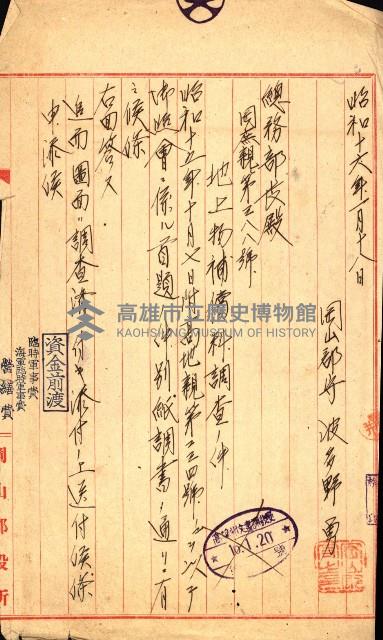 昭和十六年一月十八日
岡山郡守 波多野 勇
總務部長殿
岡庶親第三八號
地上物補償料調査ノ件
昭和十五年十月七日附高地親第三三四號ノ以テ
御照會ニ係ル首題ノ件別紙調書ノ通リニ有
之候條
右回答ス
追而圖面ハ調査濟ニ付キ添付ノ上送付候條
申添候
資金前渡
臨時軍事費
海軍臨時軍事費
營繕費
岡山郡役所
16.1.20
號
高雄市立歷史博物館
KAOHSIUNG MUSEUM OF HISTORY